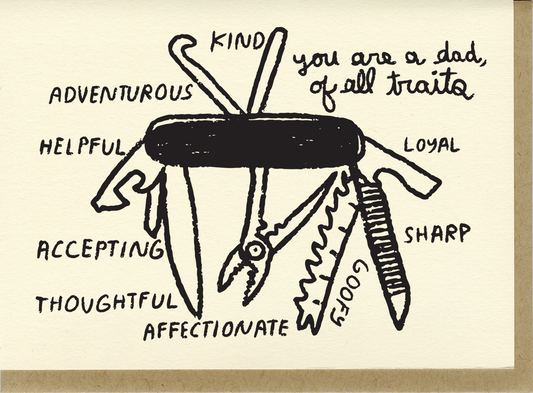 KIND
you are a dad,
of all traits
ADVENTUROUS
HELPFUL
LOYAL
ACCEPTING
SHARP
THOUGHTFUL
GOOFY
AFFECTIONATE